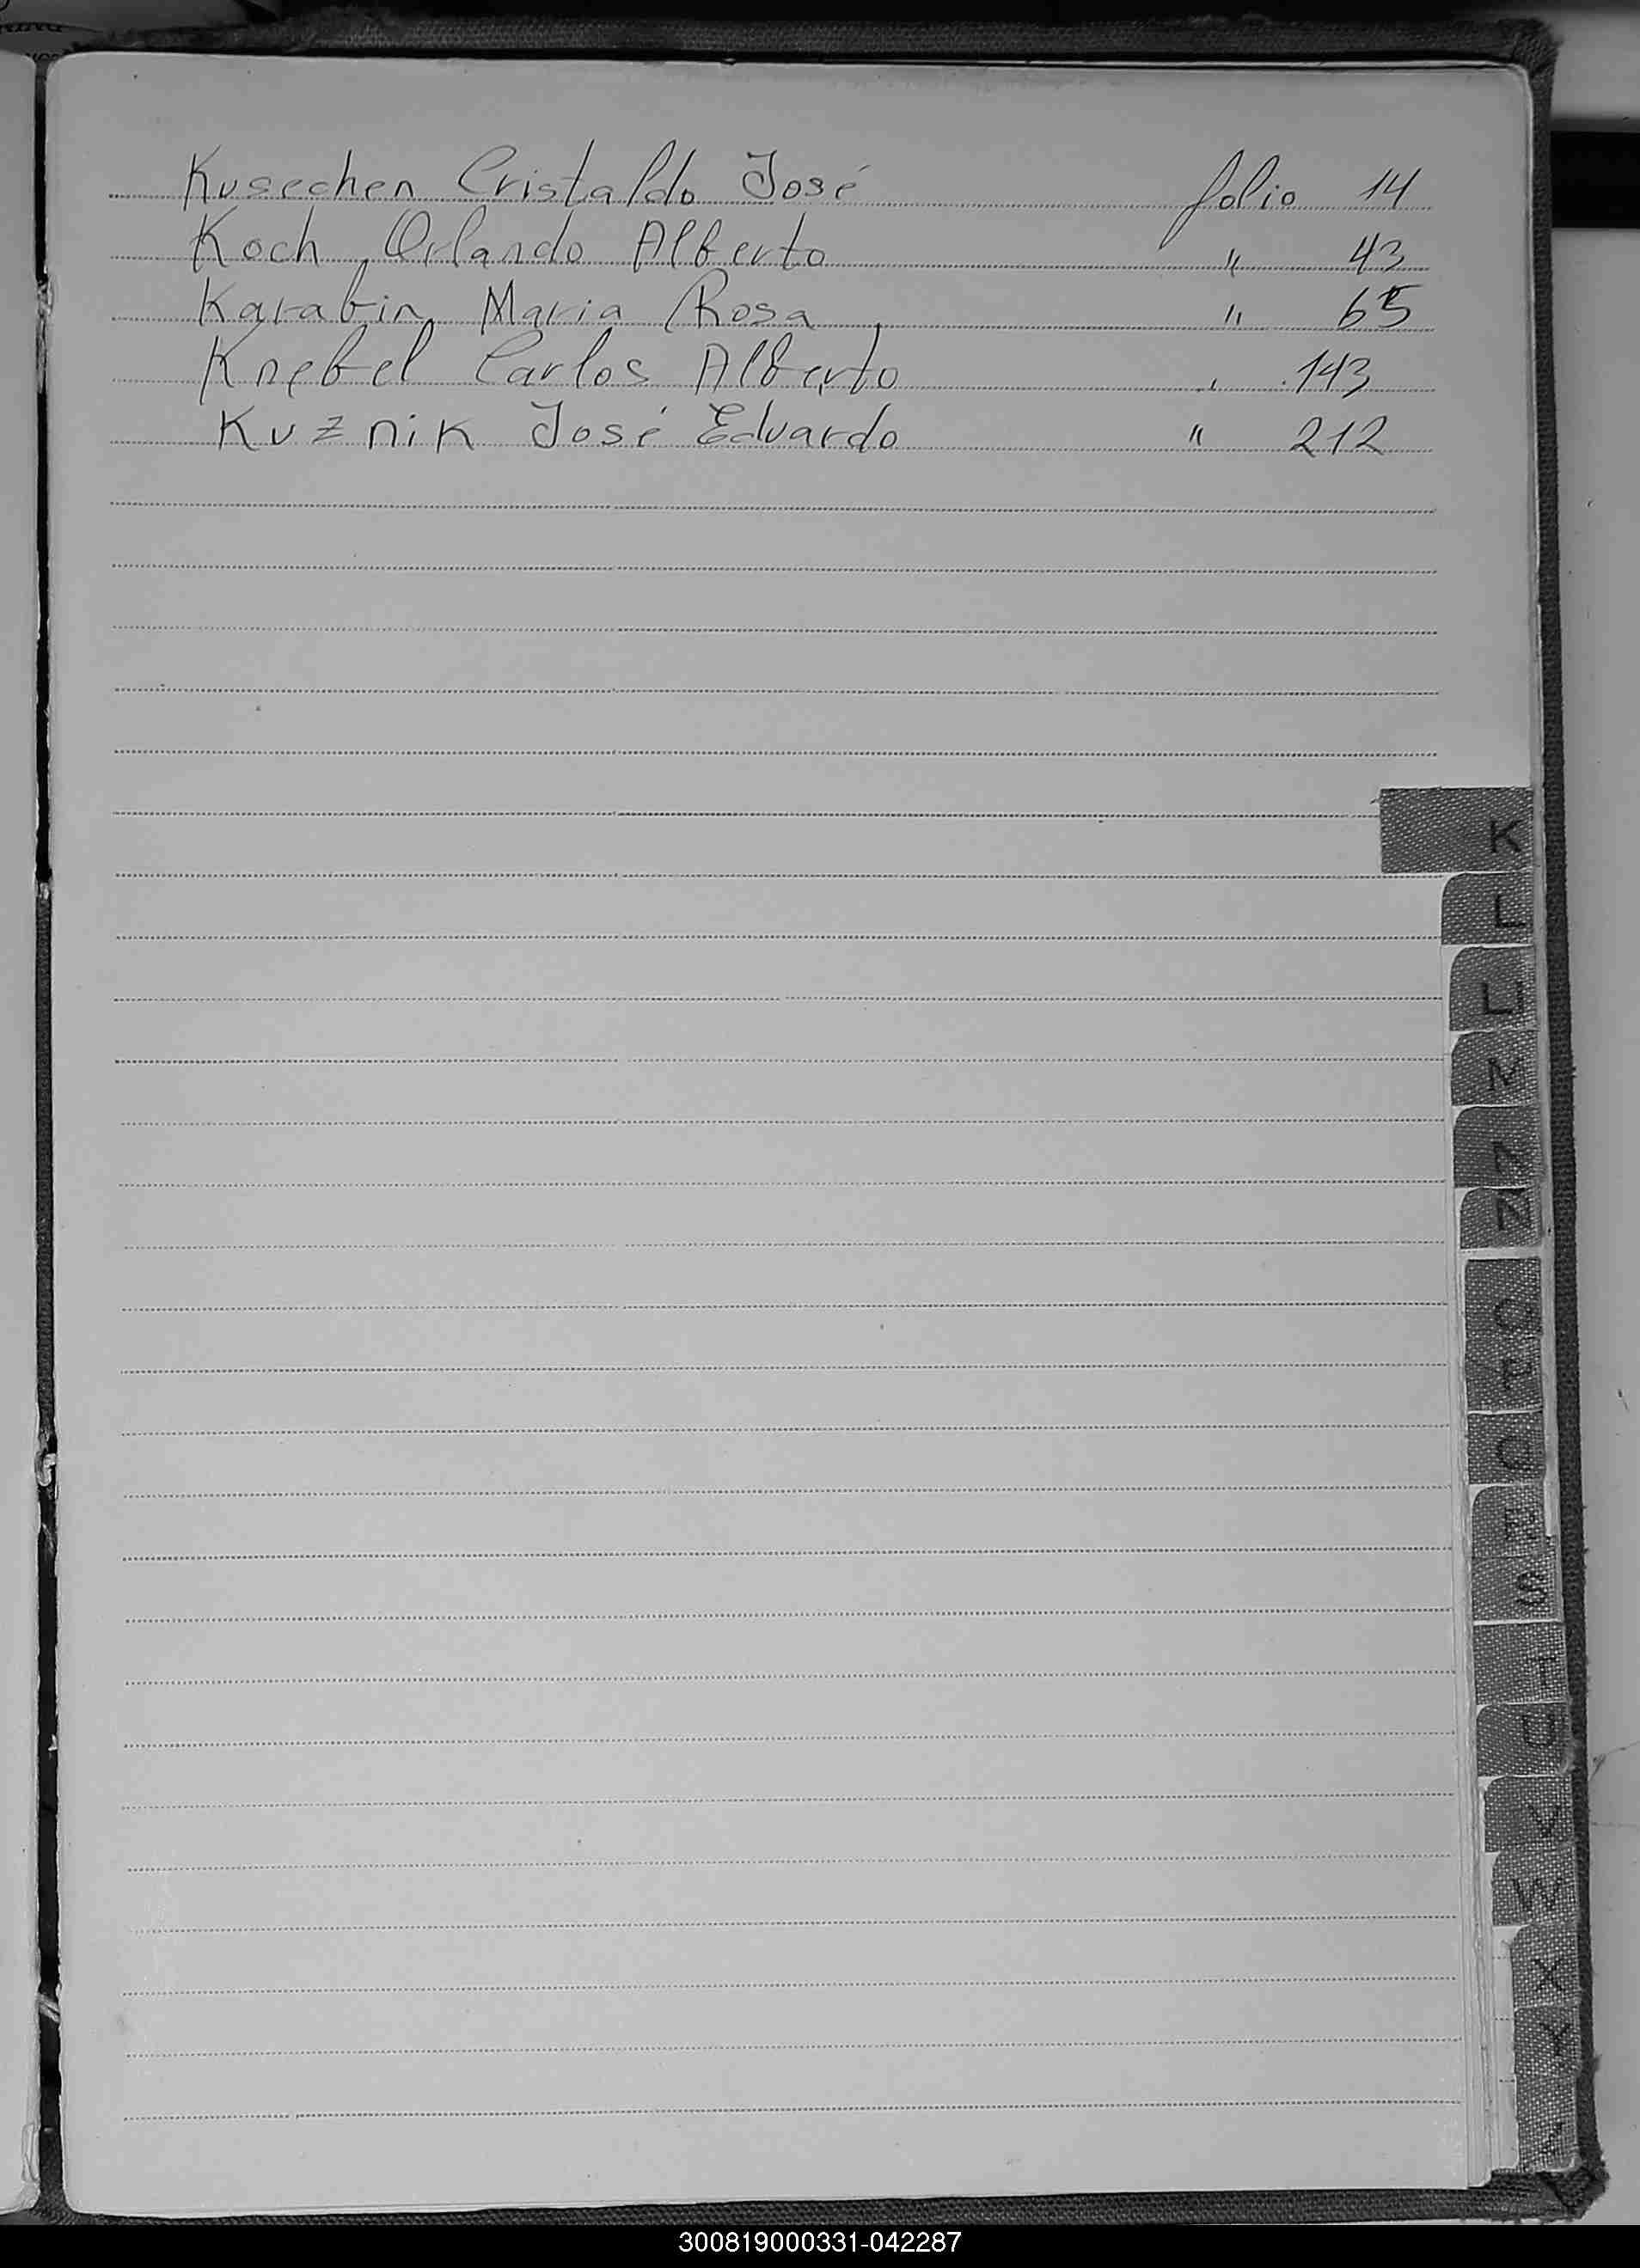 Kusechen Cristaldo José folio 14
Koch, Orlando Alberto " 43
Karabin, Maria Rosa " 65
Knebel Carlos Alberto " 143
Kuznik José Eduardo " 212
K
L
L
M
N
Ñ
O
P
Q
R
S
T
U
V
W
X
Y
300819000331-042287